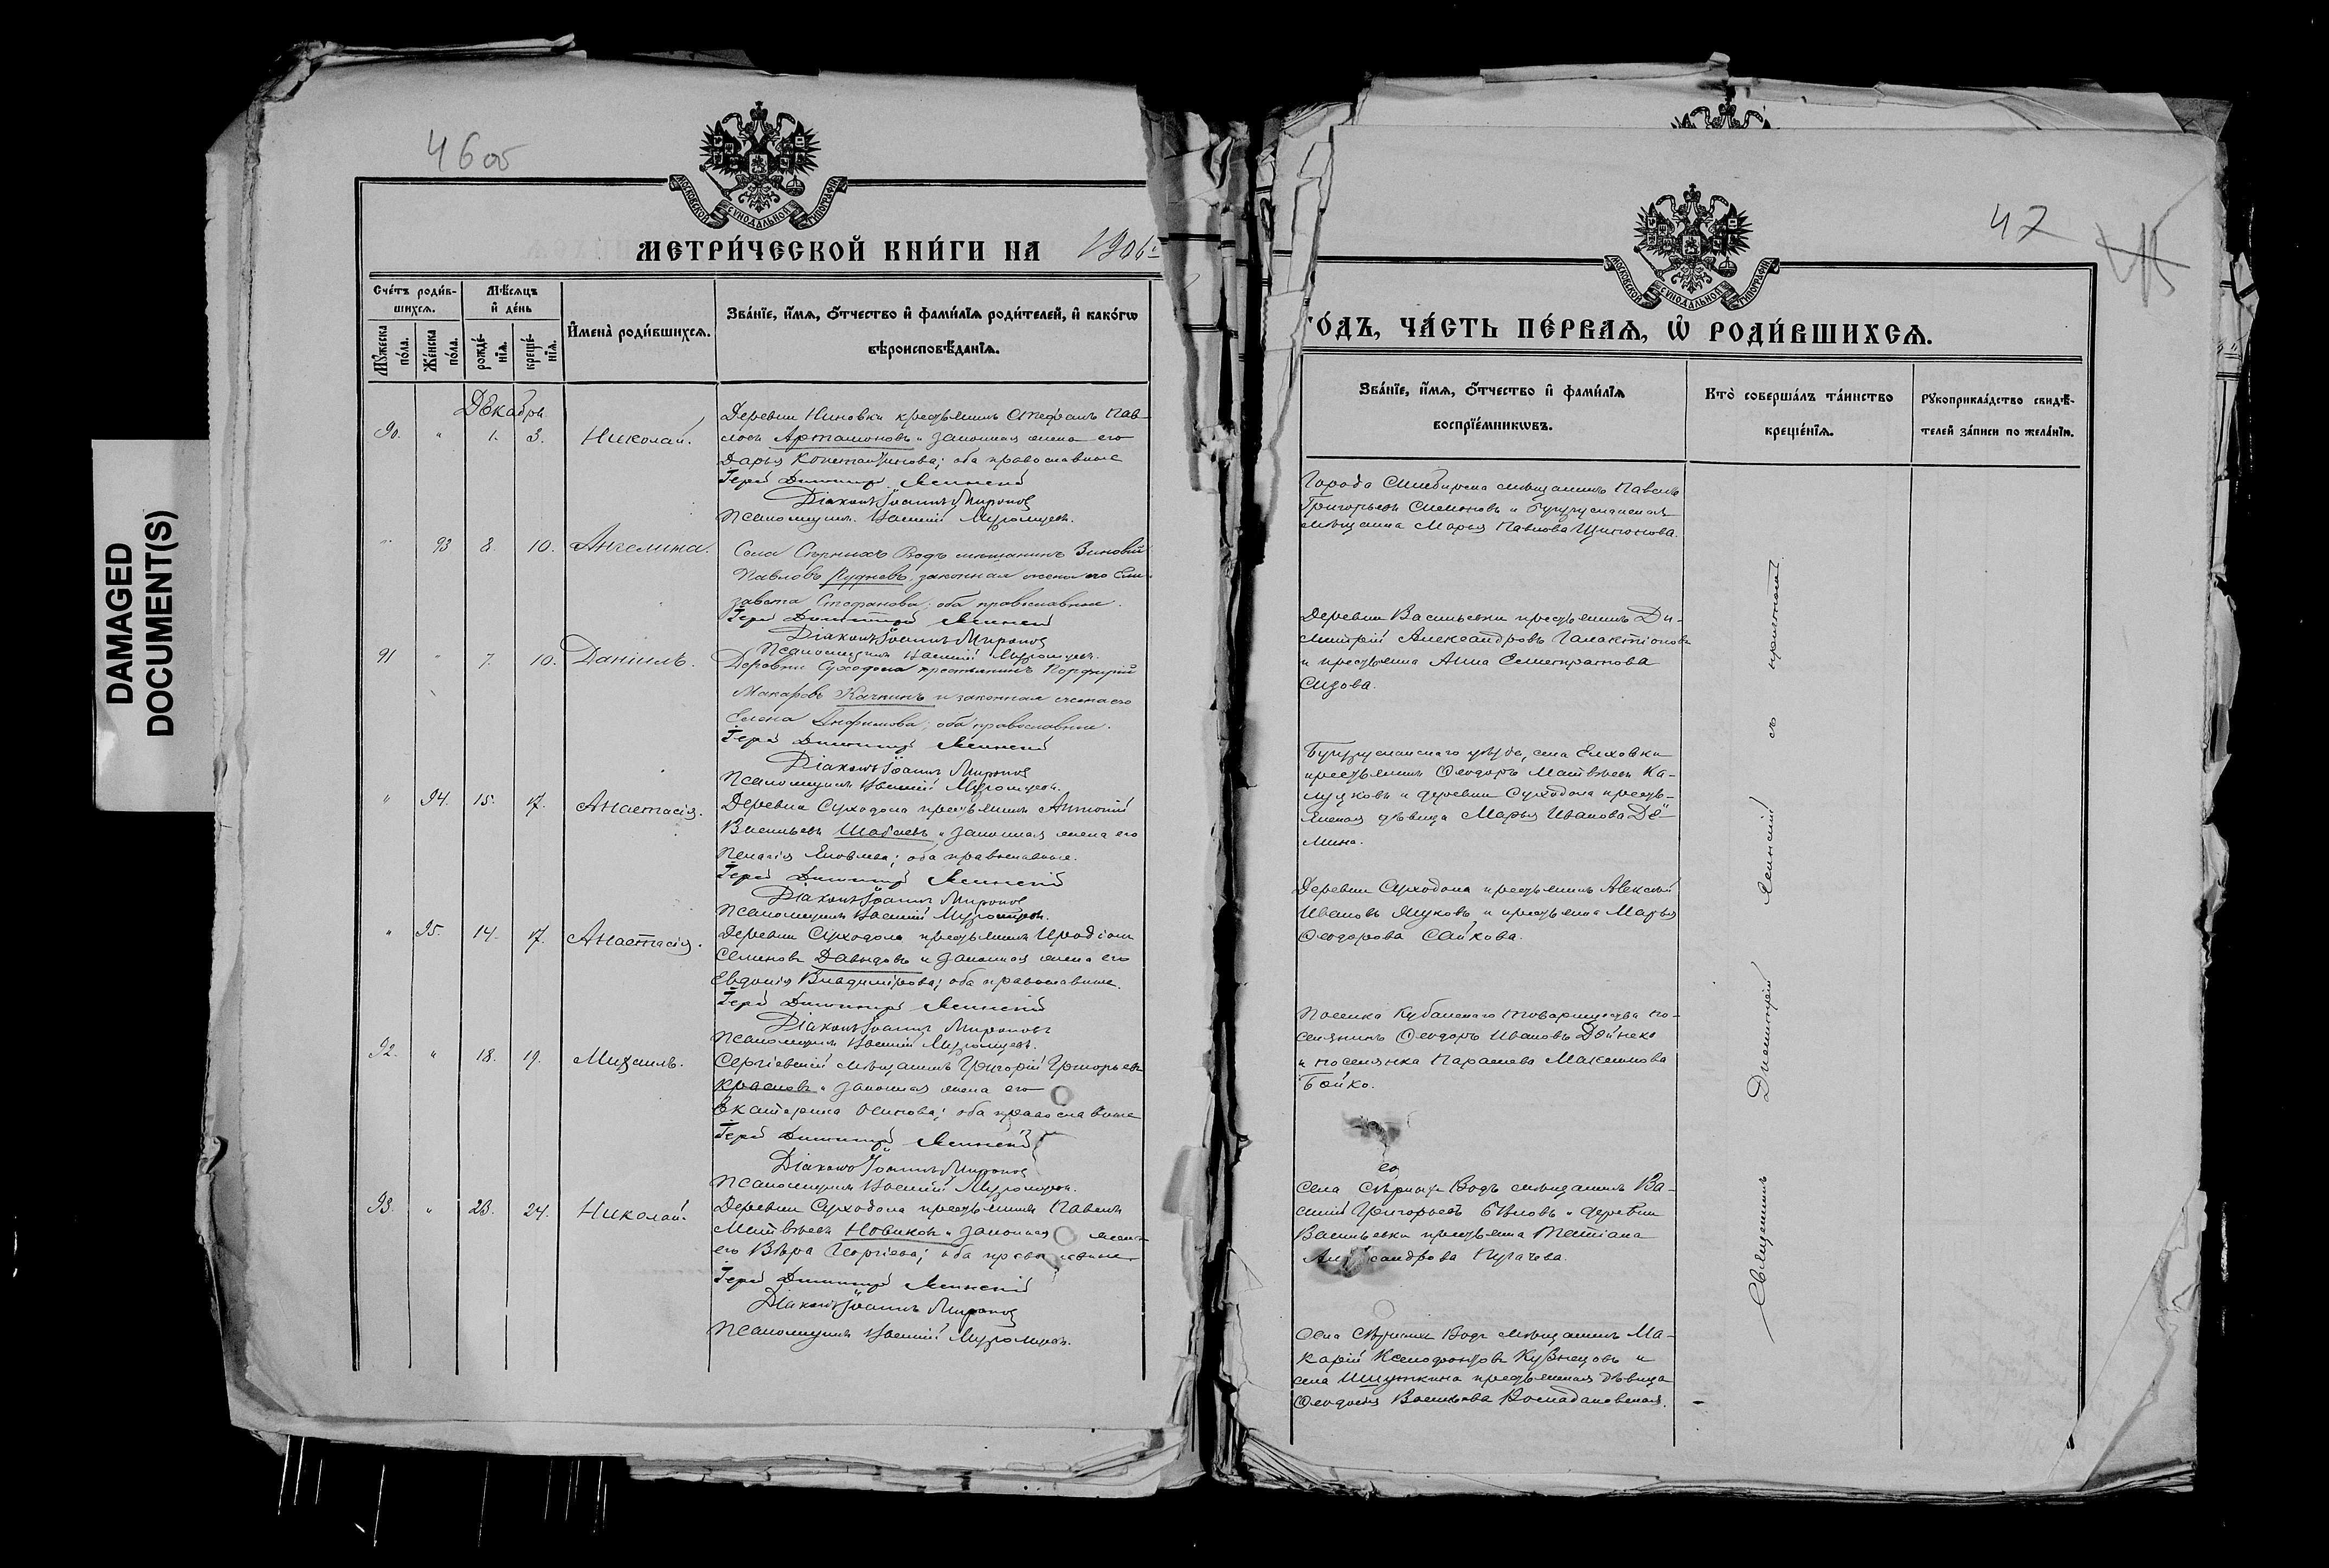 DAMAGED
DOCUMENT(S)
46об
МОСКОВСКОЙ СѴНОДАЛЬНОЙ ТИПОГРАФІИ
МЕТРИ́ЧЕСКОЙ КНИ́ГИ НА 1906 г.
Сче́тъ роди́в-
шихсѧ.
Мꙋ́жеска
по́ла.
Же́нска
по́ла.
Мѣ́сѧцъ
и҆ де́нь
рожде́-
нїѧ.
креще́-
нїѧ.
И҆мена̀ роди́вшихсѧ.
Зва́нїе, и҆́мѧ, ѻ҆́тчество и҆ фами́лїѧ роди́телей, и҆ како́гѡ
вѣроисповѣ́данїѧ.
Декабрь
90. " 1. 3. Николай.
Деревни Ниновки крестьянинъ Стефанъ Пав-
ловъ Артамоновъ и законная жена его
Дарья Константинова; оба православные
Іерей Димитрій Ясинскій
Діаконъ Іоаннъ Мироновъ
Псаломщикъ Василій Муромцевъ.
" 93 8. 10. Ангелина.
Села Сѣрныхъ Водъ мѣщанинъ Зиновій
Павловъ Рудневъ, законная жена его Ели-
завета Стефанова; оба православные.
Іерей Димитрій Ясинскій
Діаконъ Іоаннъ Мироновъ
Псаломщикъ Василій Муромцевъ.
91 " 7. 10. Даніилъ.
Деревни Суходола крестьянинъ Порфирій
Макаровъ Качкинъ и законная жена его
Елена Анфимова; оба православные.
Іерей Димитрій Ясинскій
Діаконъ Іоаннъ Мироновъ
Псаломщикъ Василій Муромцевъ.
" 94. 15. 17. Анастасія.
Деревни Суходола крестьянинъ Антоній
Васильевъ Шабаевъ и законная жена его
Пелагія Яковлева; оба православные.
Іерей Димитрій Ясинскій
Діаконъ Іоаннъ Мироновъ
Псаломщикъ Василій Муромцевъ.
" 95. 14. 17. Анастасія.
Деревни Суходола крестьянинъ Иродіонъ
Семеновъ Давыдовъ и законная жена его
Евдокія Владимірова; оба православные.
Іерей Димитрій Ясинскій
Діаконъ Іоаннъ Мироновъ
Псаломщикъ Василій Муромцевъ.
92. " 18. 19. Михаилъ.
Сергіевскій мѣщанинъ Григорій Григорьевъ
Красновъ и законная жена его
Екатерина Осипова; оба православные
Іерей Димитрій Ясинскій
Діаконъ Іоаннъ Мироновъ
Псаломщикъ Василій Муромцевъ.
93. " 23. 24. Николай.
Деревни Суходола крестьянинъ Павелъ
Матвѣевъ Новиковъ и законная жена
его Вѣра Георгіева; оба православные
Іерей Димитрій Ясинскій
Діаконъ Іоаннъ Мироновъ
Псаломщикъ Василій Муромцевъ.
47
МОСКОВСКОЙ СѴНОДАЛЬНОЙ ТИПОГРАФІИ
ГО́ДЪ, ЧА́СТЬ ПЕ́РВАѦ, Ѡ҆ РОДИ́ВШИХСѦ.
Зва́нїе, и҆́мѧ, ѻ҆́тчество и҆ фами́лїѧ
воспрїе́мникѡвъ.
Кто̀ соверша́лъ та́инство
креще́нїѧ.
Рꙋкоприкла́дство свидѣ́-
телей за́писи по жела́нїю.
Города Симбирска мѣщанинъ Павелъ
Григорьевъ Симоновъ и Бугурусланская
мѣщанка Марья Павлова Щипонова.
Деревни Васильевки крестьянинъ Ди-
митрій Александровъ Галактіоновъ
и крестьянка Анна Селиверстова
Сизова.
Бугурусланскаго уѣзда, села Елховки
крестьянинъ Ѳеодоръ Матвѣевъ Ка-
лухковъ и деревни Суходола кресть-
янская дѣвица Марья Иванова Дё-
мина.
Деревни Суходола крестьянинъ Алексѣй
Ивановъ Жуковъ и крестьянка Марья
Ѳеодорова Сайкова.
Поселка Кубанскаго товарищества по-
селянинъ Ѳеодоръ Ивановъ Дейнеко
и поселянка Параскева Максимова
Бойко.
Села Сѣрныхъ Водъ мѣщанинъ Ва-
силій Григорьевъ Бѣловъ и деревни
Васильевки крестьянка Татіана
Александрова Пугачева.
Села Сѣрныхъ Водъ мѣщанинъ Ма-
карій Ксенофонтовъ Кузнецовъ и
села Шиуткина крестьянская дѣвица
Ѳеодосія Васильева Восмадановская.
Священникъ Димитрій Ясинскій съ причтомъ.